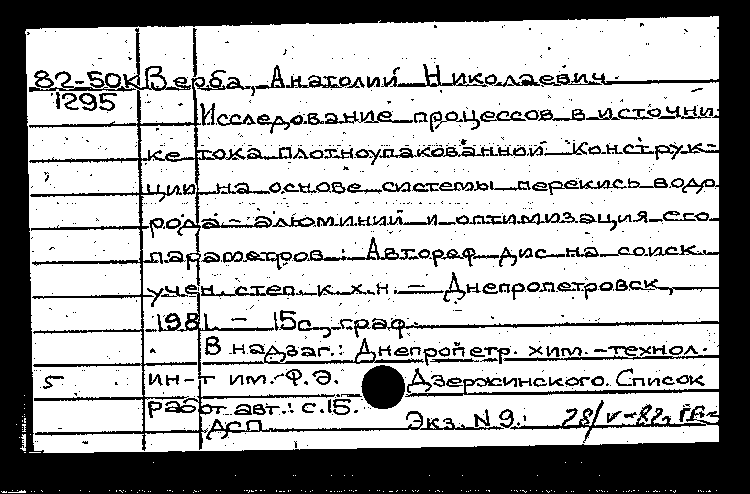 82-50К Верба, Анатолий Николаевич.
1295
Исследование процессов в источни
ке тока плотноупакованной конструк-
ции на основе системы перекись водо
рода - алюминий и оптимизация его
параметров : Автореф дис на соиск.
учен. степ. к. х.н. - Днепропетровск,
1981. - 15с, граф.
В надзаг.: Днепропетр. хим.-технол.
5 ин-т им. Ф.Э. Дзержинского. Список
работ авт.: с.15.
ДСП Экз. N 9.: 28/V-82г.